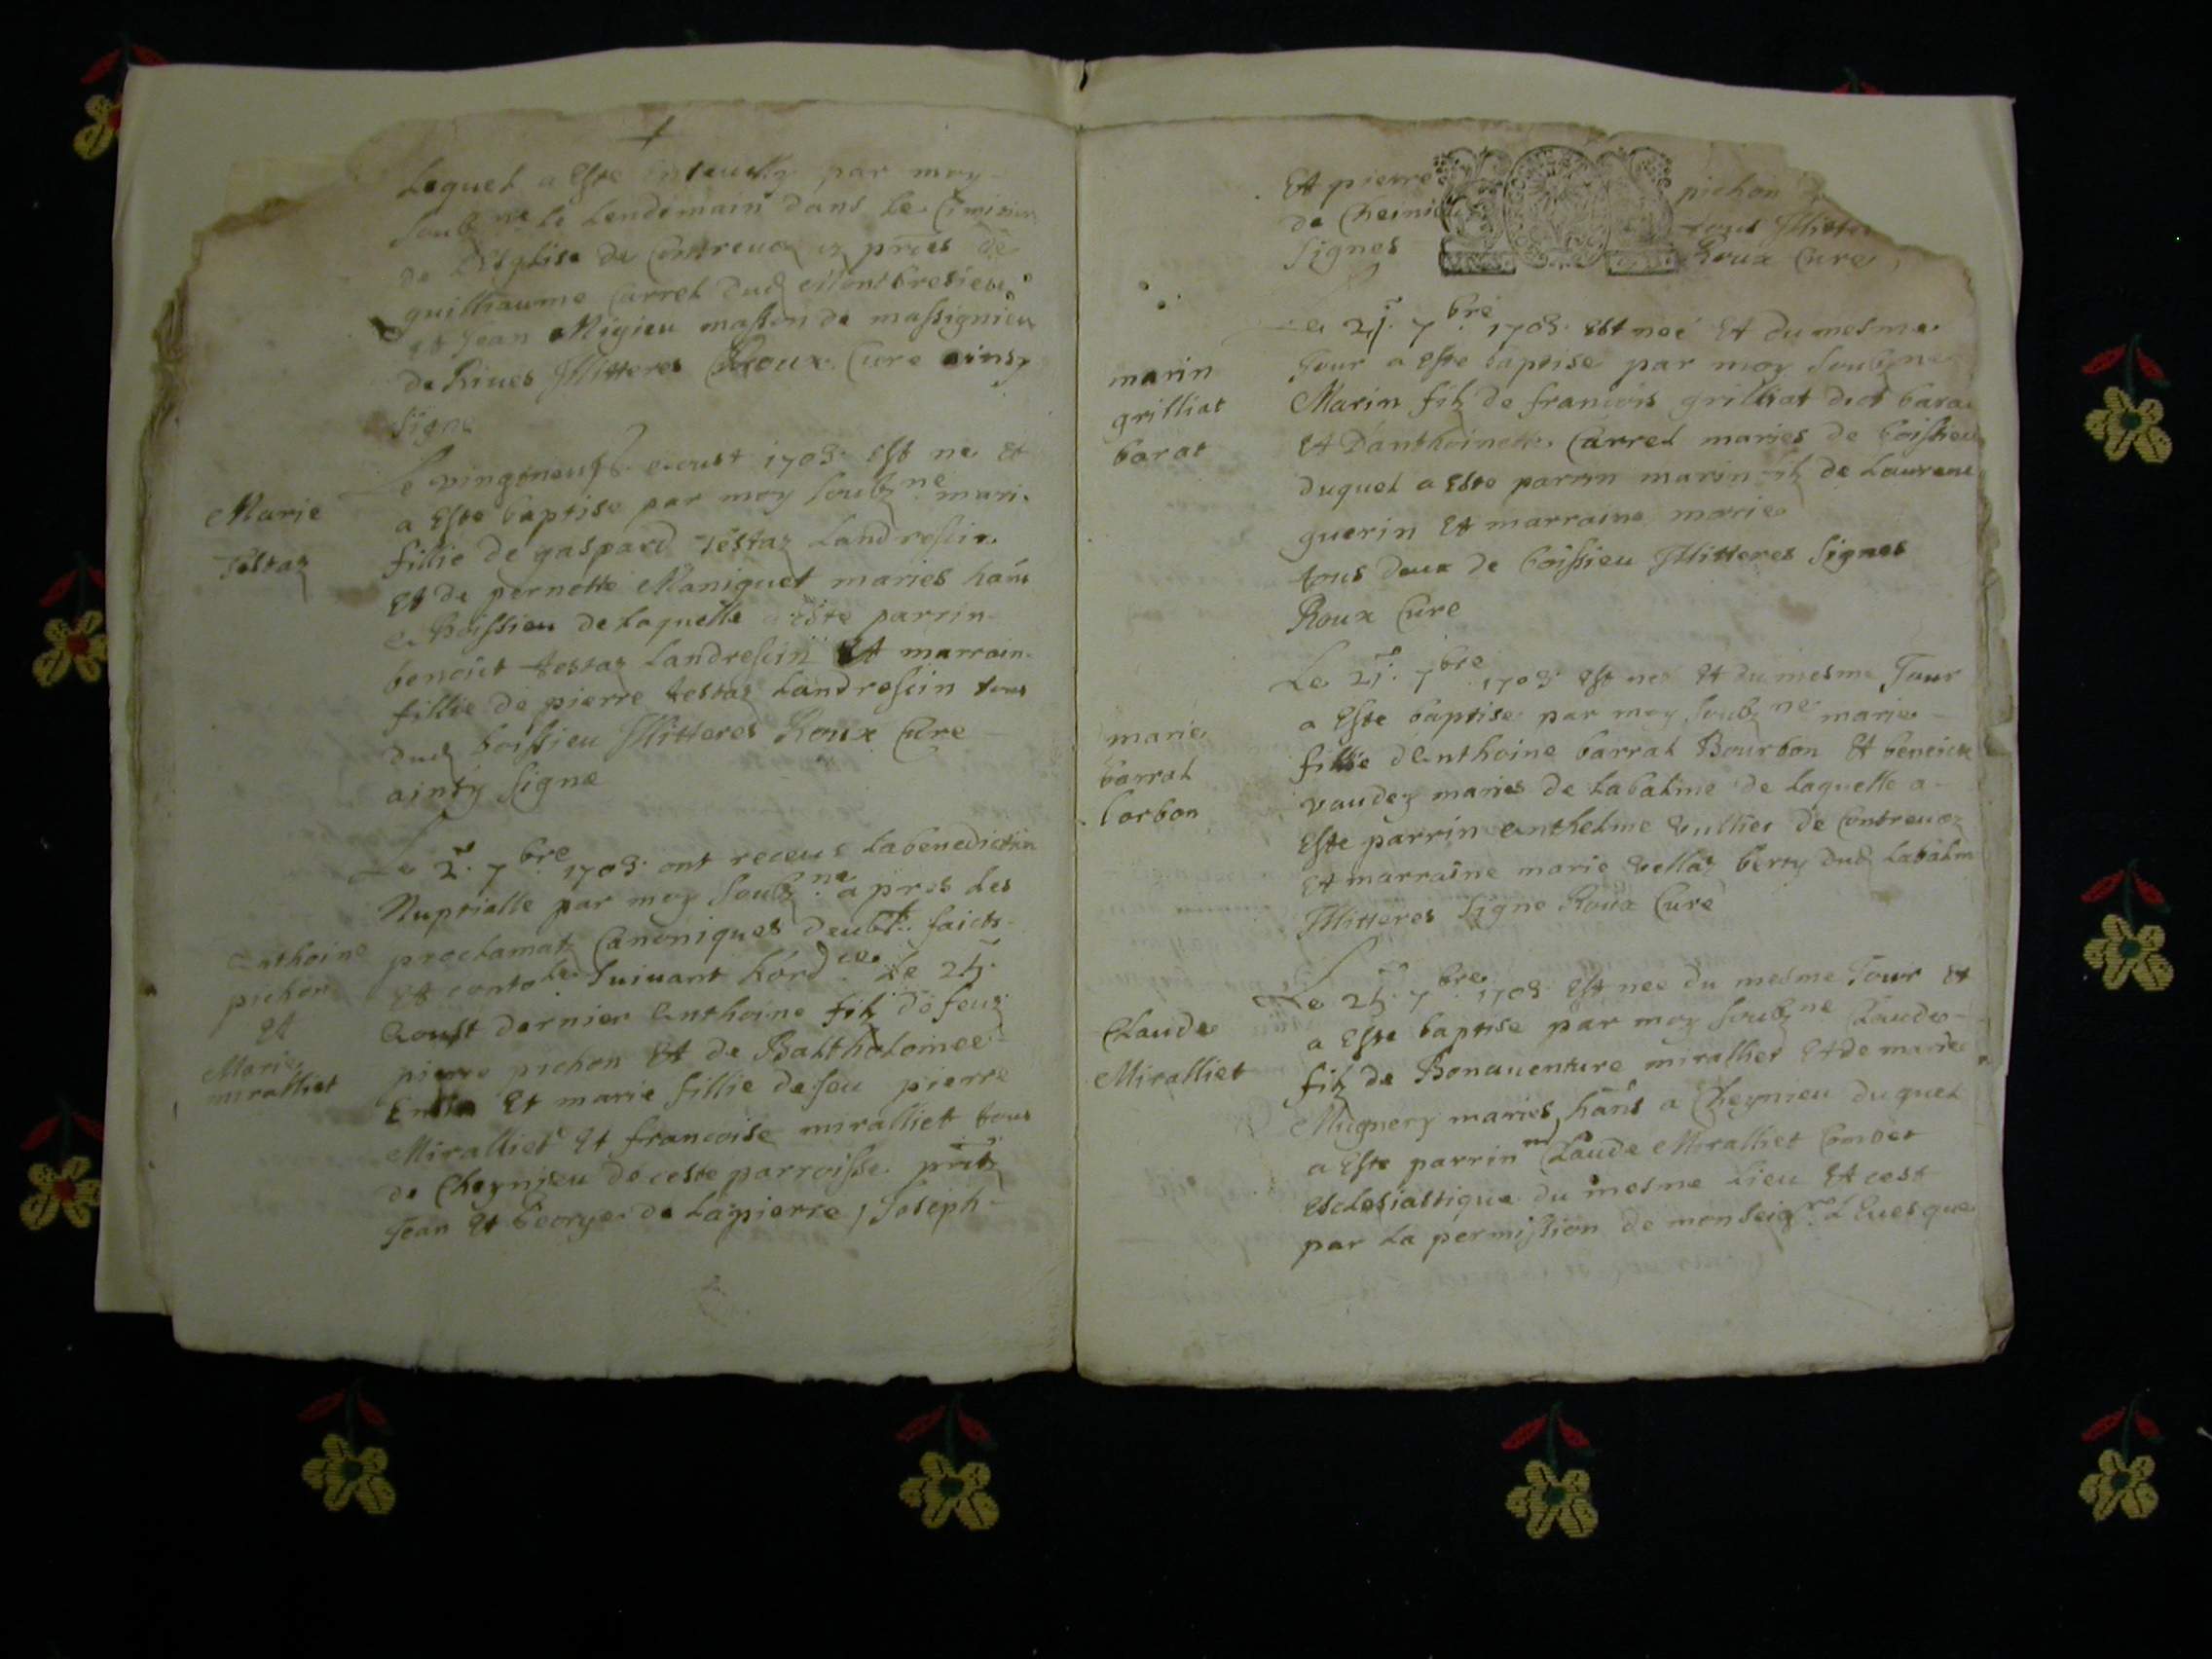 Lequel a este enseuelly par moy
soubzne le lendemain dans le Cimitier
de l'Esglise de Contreuoz ez pntes de
guilliaume Carrel dud Montbresieu
et Jean Migieu masson de massignieu
de Riues Illitteres Roux Cure ainsy
signe
Marie
Testaz
Le vingtneuf aoust 1703 est ne et
a este baptise par moy soubzne mari
fillie de gaspard Testaz Landrescin
et de pernette Maniguet maries hans
a boissieu de laquelle a este parrin
benoict testaz Landrescin et marrain
fillie de pierre testaz Landrescin tous
dud boissieu Illitteres Roux Cure
ainsy signe
anthoine
pichon
et
Marie
miralliet
Le 2e 7bre 1703 ont receus la benediction
Nuptialle par moy soubzne apres les
proclamatz Canoniques deubt faicts
et contole suiuant lord ce le
Aoust dernier anthoine filz de feuz
pierre pichon et de Baltholomee
et marie fillie de feu pierre
Miralliet et francoise miralliet tous
de Cheynieu de ceste parroisse pntz
Jean et George de Lapierre, Joseph
Et pierre pichon
de Cheinieu tous Illitte
signes Roux Cure
marin
grilliat
barat
Le 21e 7bre 1703 est neé et du mesme
Jour a este baptise par moy soubzne
Marin filz de francois grilliat dict bara
et d'anthoinette Carrel maries de boissieu
duquel a este parrin marin filz de Laurent
guerin et marraine marie
tous deux de boissieu Illitteres signes
Roux Cure
marie
barral
borbon
Le 21e 7bre 1703 est neé et du mesme Jour
a este baptise par moy soubzne marie
fillie d'Anthoine barral Bourbon et benoicte
vaudez maries de labalme de laquelle a
este parrin anthelme vulliet de Contreuoz
et marraine marie vellaz berry dud labalm
Illitteres signe Roux Cure
Claude
Miralliet
Le 7bre 1703 est nee du mesme Jour et
a este baptise par moy soubzne Claude
filz de Bonauenture miralliet et de marie
Mugnery maries, hans a Cheynieu duquel
a este parrin Claude Miralliet
Esclesiastique du mesme lieu et cest
par la permission de monseigr L'Euesque